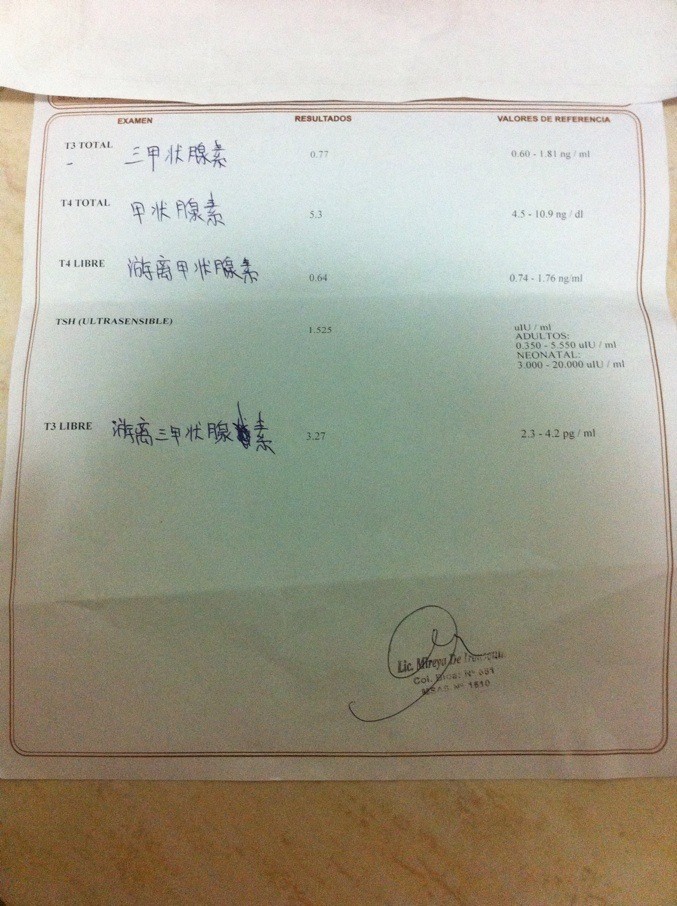 EXAMEN RESULTADOS VALORES DE REFERENCIA
T3 TOTAL 三甲状腺素 0.77 0.60 - 1.81 ng / ml
T4 TOTAL 甲状腺素 5.3 4.5 - 10.9 ng / dl
T4 LIBRE 游离甲状腺素 0.64 0.74 - 1.76 ng/ml
TSH (ULTRASENSIBLE) 1.525 uIU / ml
ADULTOS:
0.350 - 5.550 uIU / ml
NEONATAL:
3.000 - 20.000 uIU / ml
T3 LIBRE 游离三甲状腺素 3.27 2.3 - 4.2 pg / ml
Lic. Mireya De
Col. Bioa: Nº 691
MSAS Nº 1610